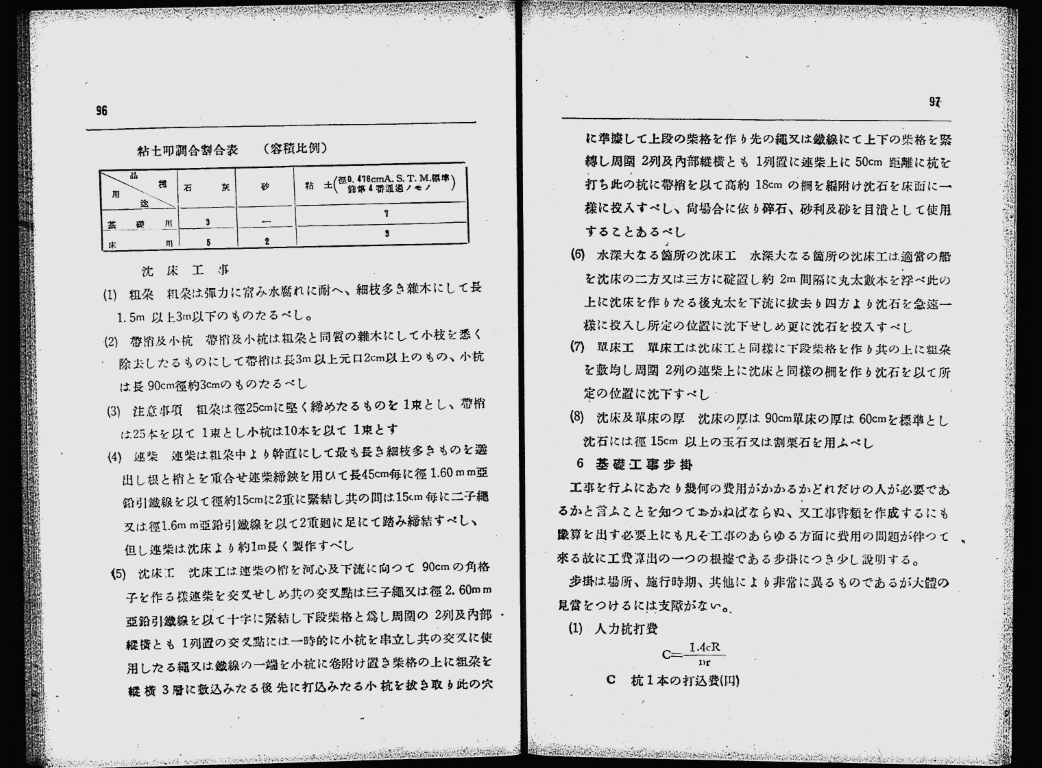 96
粘土叩調合割合表　（容積比例）
品種
用途
石灰
砂
粘土(徑0.476cmA.S.T.M.標準篩第4番通過ノモノ)
基礎用　3　—　7
床用　5　2　3
沈床工事
(1) 粗朶　粗朶は彈力に富み水腐れに耐へ、細枝多き雜木にして長
1.5m 以上3m以下のものたるべし。
(2) 帶梢及小杭　帶梢及小杭は粗朶と同質の雜木にして小枝を悉く
除去したるものにして帶梢は長3m以上元口2cm以上のもの、小杭
は長 90cm徑約3cmのものたるべし
(3) 注意事項　粗朶は徑25cmに堅く締めたるものを 1束とし、帶梢
は25本を以て 1束とし小杭は10本を以て 1束とす
(4) 連柴　連柴は粗朶中より幹直にして最も長き細枝多きものを選
出し根と梢とを重合せ連柴締鋏を用ひて長45cm毎に徑 1.60mm亞
鉛引鐵線を以て徑約15cmに2重に緊結し共の間は15cm 毎に二子繩
又は徑1.6mm亞鉛引鐵線を以て2重廻に足にて踏み締結すべし、
但し連柴は沈床より約1m長く製作すべし
(5) 沈床工　沈床工は連柴の梢を河心及下流に向つて 90cmの角格
子を作る樣連柴を交叉せしめ共の交叉點は三子繩又は徑2.60mm
亞鉛引鐵線を以て十字に緊結し下段柴格と爲し周圍の 2列及内部
縱橫とも 1列置の交叉點には一時的に小杭を串立し共の交叉に使
用したる繩又は鐵線の一端を小杭に卷附け置き柴格の上に粗朶を
縱橫 3 層に敷込みたる後先に打込みたる小杭を拔き取り此の穴
97
に準據して上段の柴格を作り先の繩又は鐵線にて上下の柴格を緊
縛し周圍 2列及内部縱橫とも 1列置に連柴上に 50cm 距離に杭を
打ち此の杭に帶梢を以て高約 18cm の柵を編附け沈石を床面に一
樣に投入すべし、尙場合に依り碎石、砂利及砂を目潰として使用
することあるべし
(6) 水深大なる箇所の沈床工　水深大なる箇所の沈床工は適當の船
を沈床の二方又は三方に碇置し約 2m 間隔に丸太數本を浮べ此の
上に沈床を作りたる後丸太を下流に拔去り四方より沈石を急速一
樣に投入し所定の位置に沈下せしめ更に沈石を投入すべし
(7) 單床工　單床工は沈床工と同樣に下段柴格を作り共の上に粗朶
を敷均し周圍 2列の連柴上に沈床と同樣の柵を作り沈石を以て所
定の位置に沈下すべし
(8) 沈床及單床の厚　沈床の厚は 90cm單床の厚は 60cmを標準とし
沈石には徑 15cm 以上の玉石又は割栗石を用ふべし
6 基礎工事步掛
工事を行ふにあたり幾何の費用がかかるかどれだけの人が必要であ
るかと言ふことを知つておかねばならぬ、又工事書類を作成するにも
豫算を出す必要上にも凡そ工事のあらゆる方面に費用の問題が伴つて
來る故に工費算出の一つの根據である步掛につき少し說明する。
步掛は場所、施行時期、共他により非常に異るものであるが大體の
見當をつけるには支障がない。
(1) 人力杭打費
C=1.4cR/nr
C　杭1本の打込費(円)